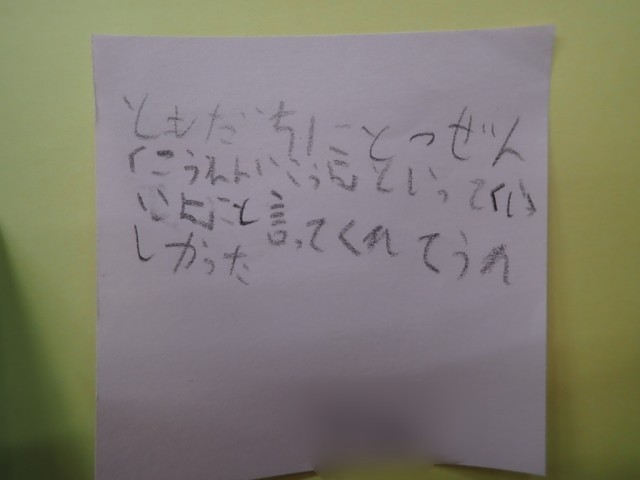 ともだちにとつぜん
「こうえんいこうよ」といって「い
いよ」と言ってくれてうれ
しかった